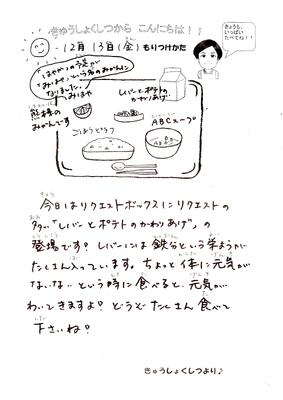 きゅうしょくしつから こんにちは！♪
12月 13日(金) もりつけかた
きょうも、
いっぱい
たべてね！！
「はやか」の予定が
「みはや」という名のみかんに
なりました。
みはや
熊本の
みかんです
レバーとポテトの
かわりあげ
ごぼうピラフ
ABCスープ
今日はリクエストボックスにリクエストの
多い「レバーとポテトのかわりあげ」の
登場です？レバーには鉄分という栄ようが
たくさん入っています。ちょっと体に元気が
ないな…という時に食べると、元気が
わいてきますよ？どうぞたくさん食べて
下さいね？
きゅうしょくしつより♪